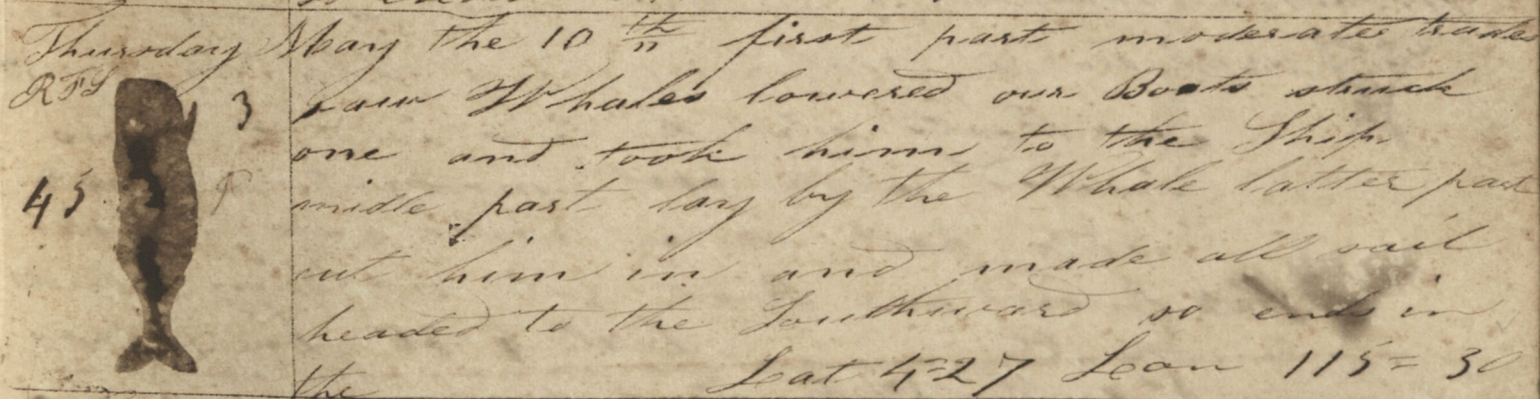 Thursday May the 10 th first part moderate trades
RFS 3 saw Whales lowered our Boats struck
one and took him to the Ship
45 midle part lay by the Whale latter part
cut him in and made all sail
headed to the Southward so ends in
the Lat 4=27 Lon 115=30